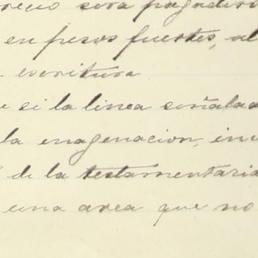 precio será pagadero
en pesos fuertes, al
escritura
e si la linea señalada
la enagenacion, in
de la testamentaria
una area que no